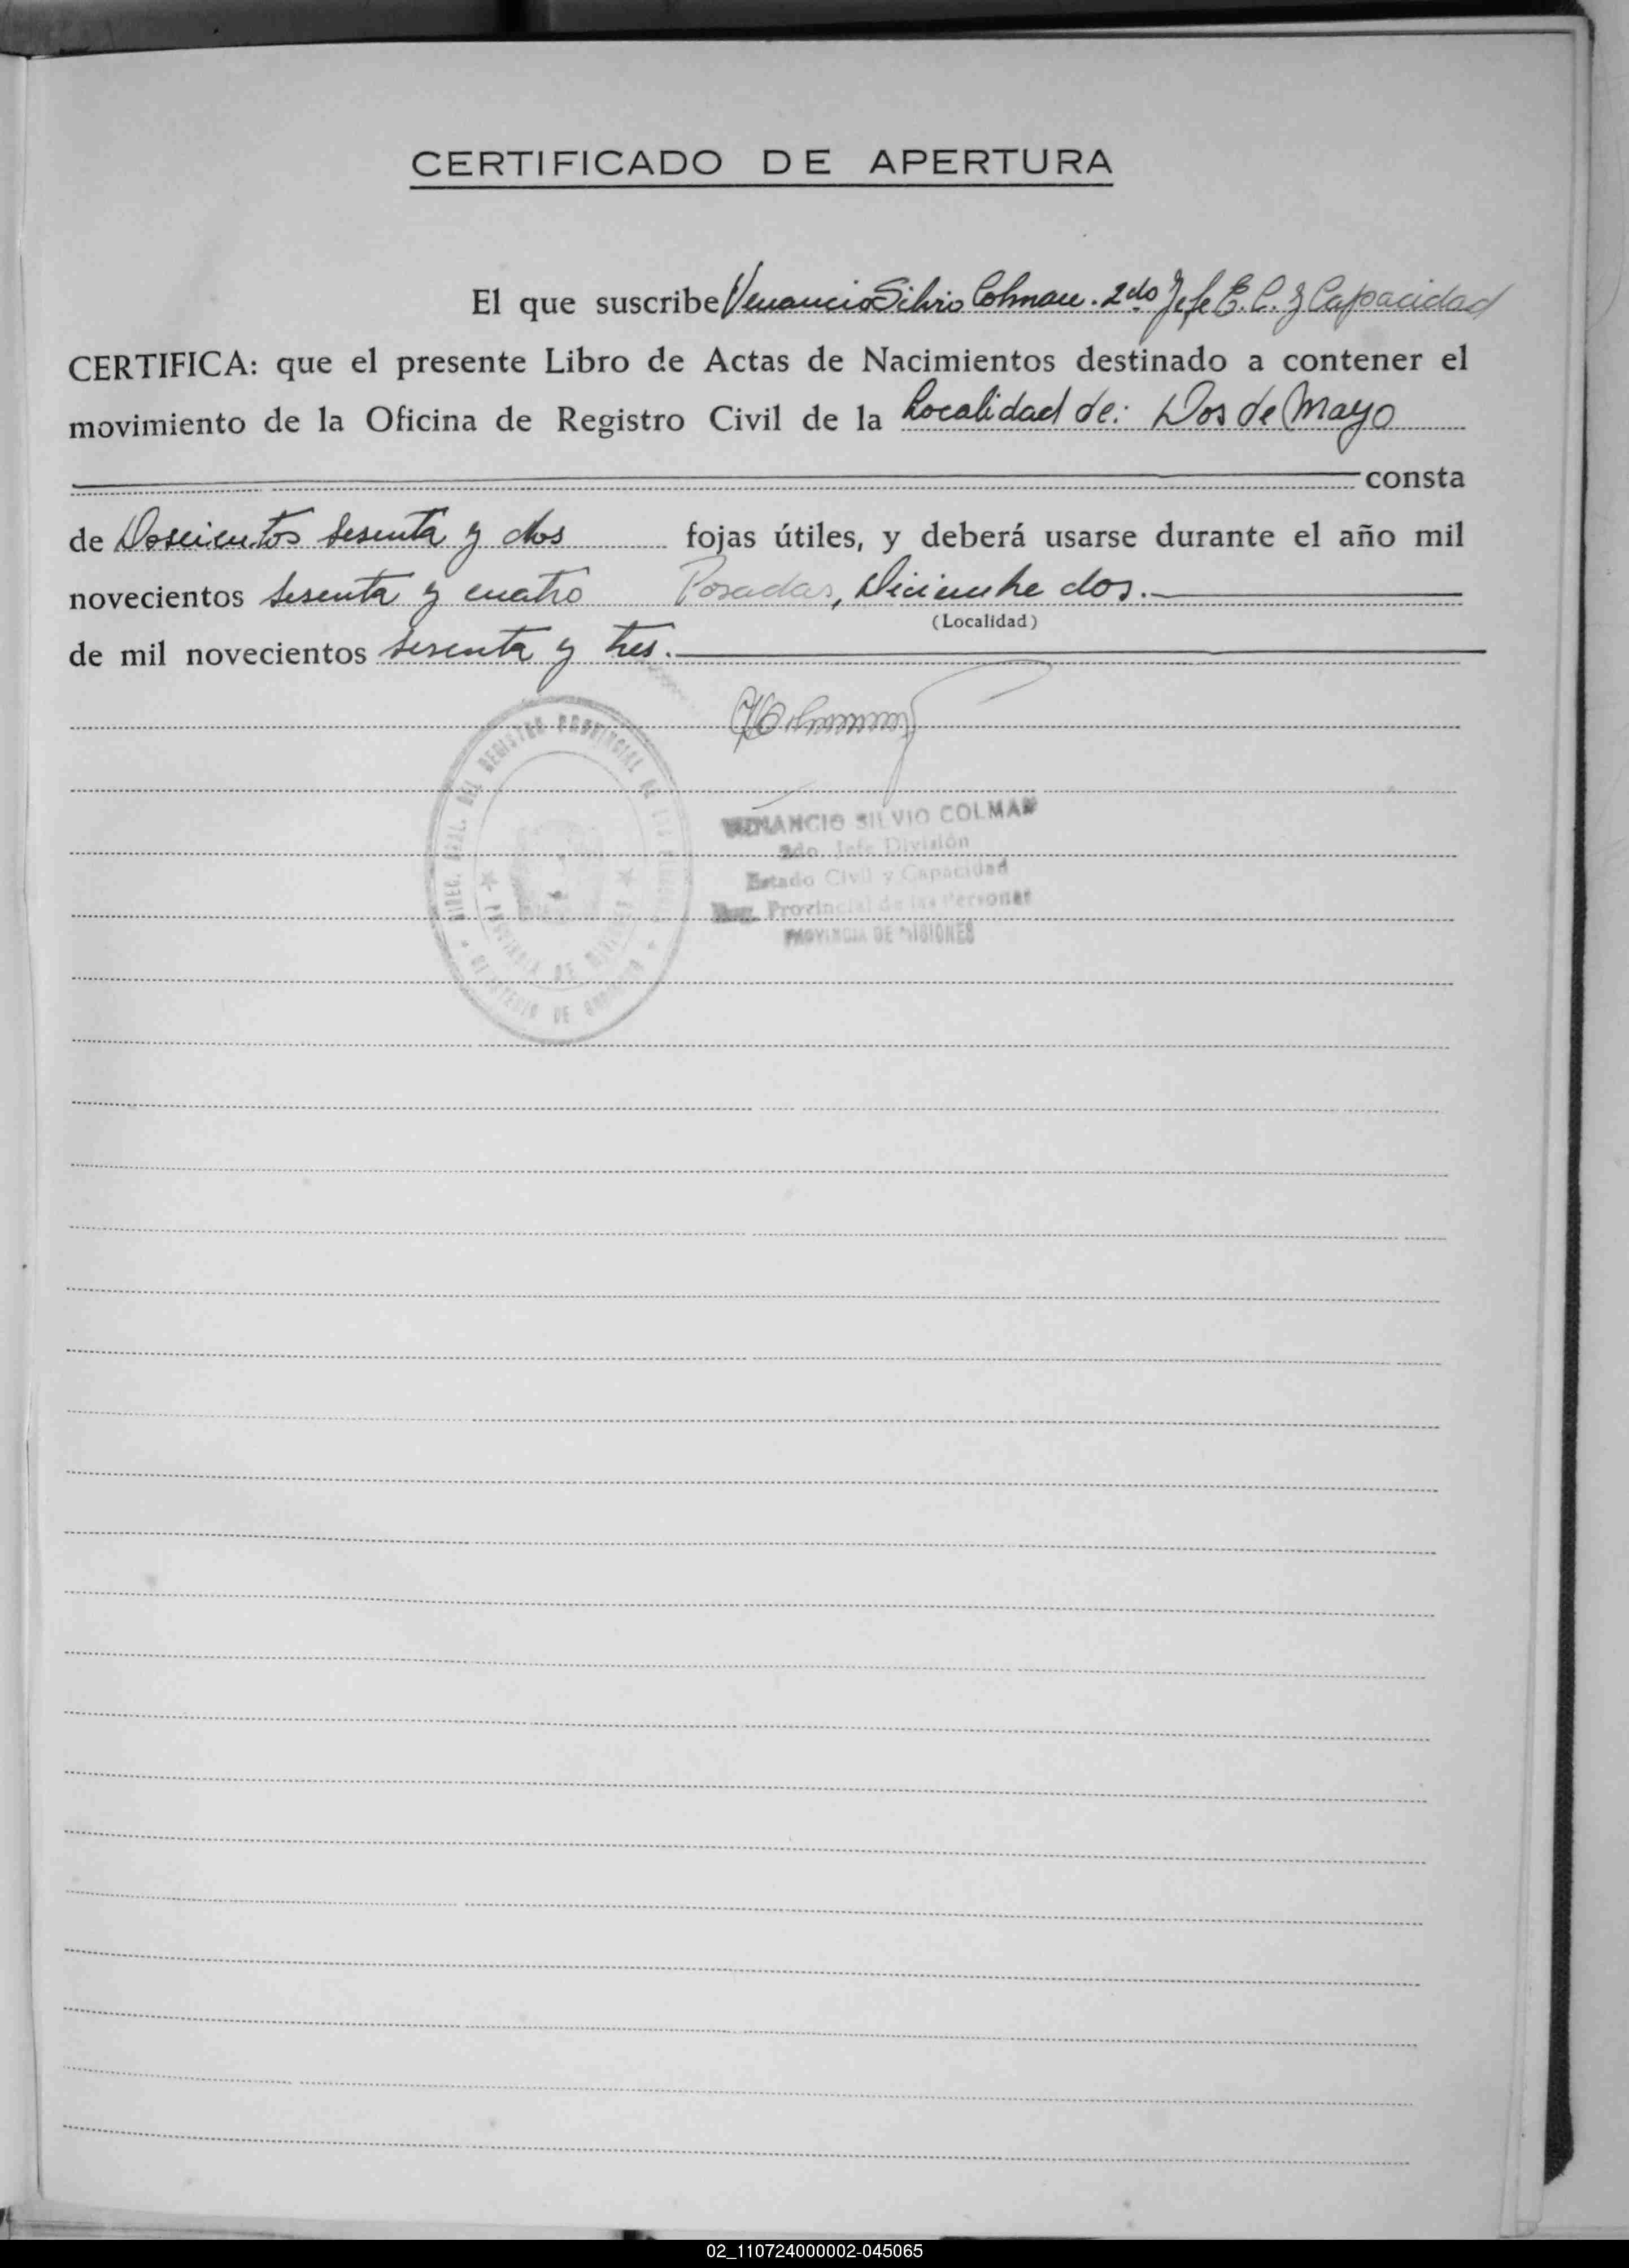 CERTIFICADO DE APERTURA
El que suscribe Venancio Silvio Colman. 2do Jefe E.C. y Capacidad
CERTIFICA: que el presente Libro de Actas de Nacimientos destinado a contener el
movimiento de la Oficina de Registro Civil de la Localidad de: Dos de Mayo
consta
de Doscientos sesenta y dos fojas útiles, y deberá usarse durante el año mil
novecientos sesenta y cuatro Posadas, Diciembre dos.
(Localidad)
de mil novecientos sesenta y tres.
DIREC. GRAL. DEL REGISTRO PROVINCIAL DE LAS PERSONAS
PROVINCIA DE MISIONES
MINISTERIO DE GOBIERNO
VENANCIO SILVIO COLMAN
2do. Jefe División
Estado Civil y Capacidad
Reg. Provincial de las Personas
PROVINCIA DE MISIONES
02_110724000002-045065